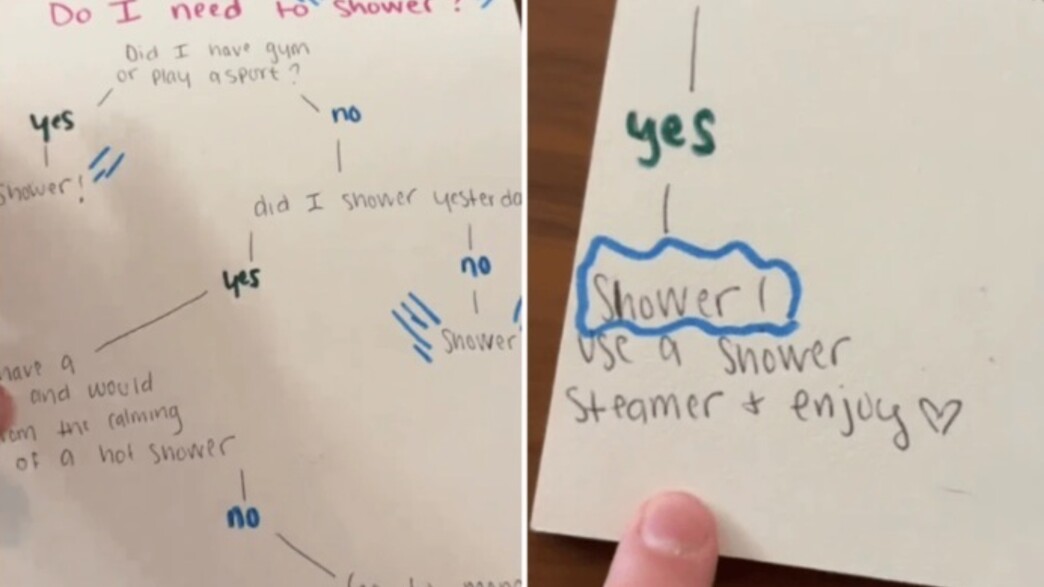 Do I need to shower?
Did I have gym
or play a sport?
yes
no
Shower!
did I shower
yes
no
Shower
have a
and would
the calming
of a hot shower
no
yes
Shower!
use a shower
steamer + enjoy ♡